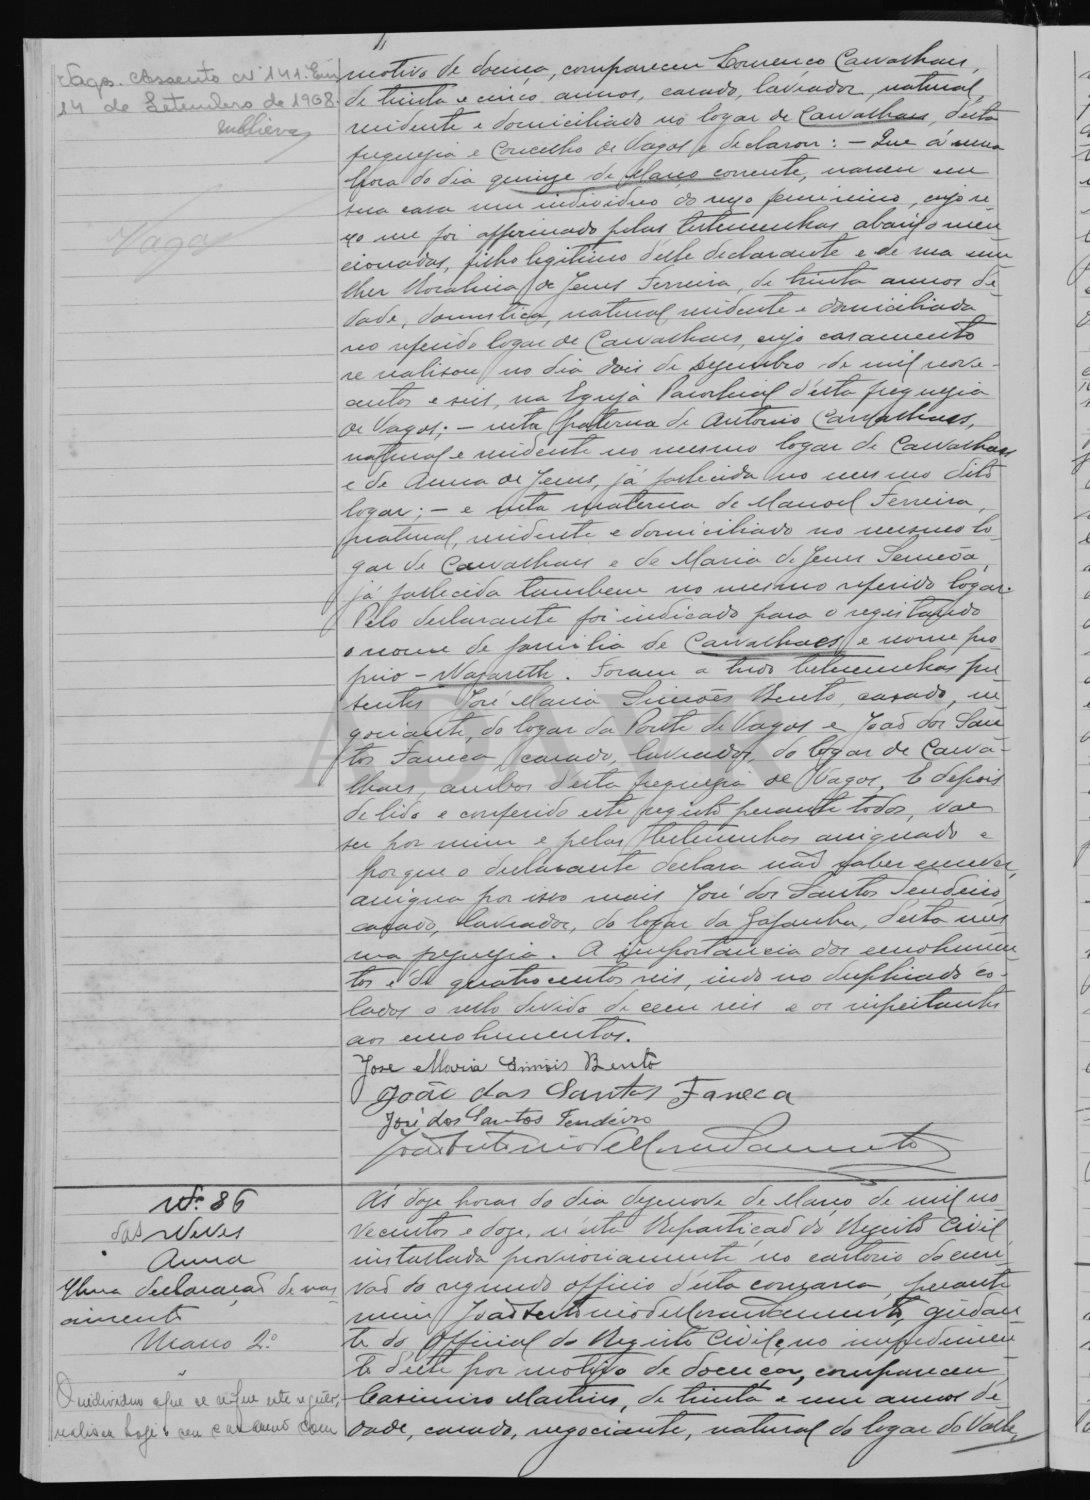 Vagos. Assento Nº 141. Em
14 de Setembro de 1968.
Vagos
motivo de doença, compareceu Lourenço Carvalhaes,
de trinta e cinco annos, casado, lavrador, natural,
residente e domiciliado no logar de Carvalhaes, d'esta
freguezia e Concelho de Vagos e declarou: - Que á uma
hora do dia quinze de Março corrente, nasceu em
sua casa um individuo do sexo feminino, cujo se-
xo me foi affirmado pelas testemunhas abaixo men
cionadas, filho legitimo d'elle declarante e de sua mu
lher Rosalina de Jesus Ferreira, de trinta annos de
dade, domestica, natural residente e domiciliada
no referido logar de Carvalhaes, cujo casamento
se realisou no dia dois de dezembro de mil nove-
centos e seis, na Egreja Parochial d'esta freguezia
de Vagos; - neta paterna de Antonio Carvalhaes,
natural e residente no mesmo logar de Carvalhaes
e de Anna de Jesus, já fallecida no mesmo dito
logar; - e neta materna de Manoel Ferreira,
natural, residente e domiciliado no mesmo lo-
gar de Carvalhaes e de Maria de Jesus Semeôa
já fallecida tambem no mesmo referido logar.
Pelo declarante foi indicado para o registando
o nome de familia de Carvalhaes e nome pro
prio - Nazareth. Foram a tudo testemunhas pre
sentes José Maria Simões Bento, casado, ne
gociante, do logar da Ponte de Vagos e João dos San
tos Faneca, casado, lavrador, do logar de Carva-
lhaes, ambos d'esta freguezia de Vagos. E depois
de lido e conferido este registo perante todos, vae
ser por mim e pelas testemunhas assignado e
porque o declarante declara não saber escrever,
assigna por isso mais José dos Santos Tendeiro
casado, lavrador, do logar da Gafanha, d'esta mes
ma freguezia. A importancia dos emolumen
tos é de quatrocentos reis, indo no duplicado co-
lados o sello devido de cem reis e os respeitantes
aos emolumentos.
José Maria Simões Bento
João dos Santos Faneca
José dos Santos Tendeiro
João Antonio de Moraes Sarmento
Nº 86
das Neves
Anna
Uma declaração de nas
cimento
Março 2º
O individuo a que se refere este registo,
realisou hoje o seu casamento com
Ás doze horas do dia dezenove de Março de mil no
vecentos e doze, n'esta Repartição do Registo Civil
installada provisoriamente no cartorio do escri
vão do segundo officio d'esta comarca, perante
mim João Antonio de Moraes Sarmento, ajudan
te do Official do Registo Civil e no impedimen
to d'este por motivo de doença, compareceu
Casimiro Martins, de trinta e um annos de
dade, casado, negociante, natural do logar do Valle,
ADAVR